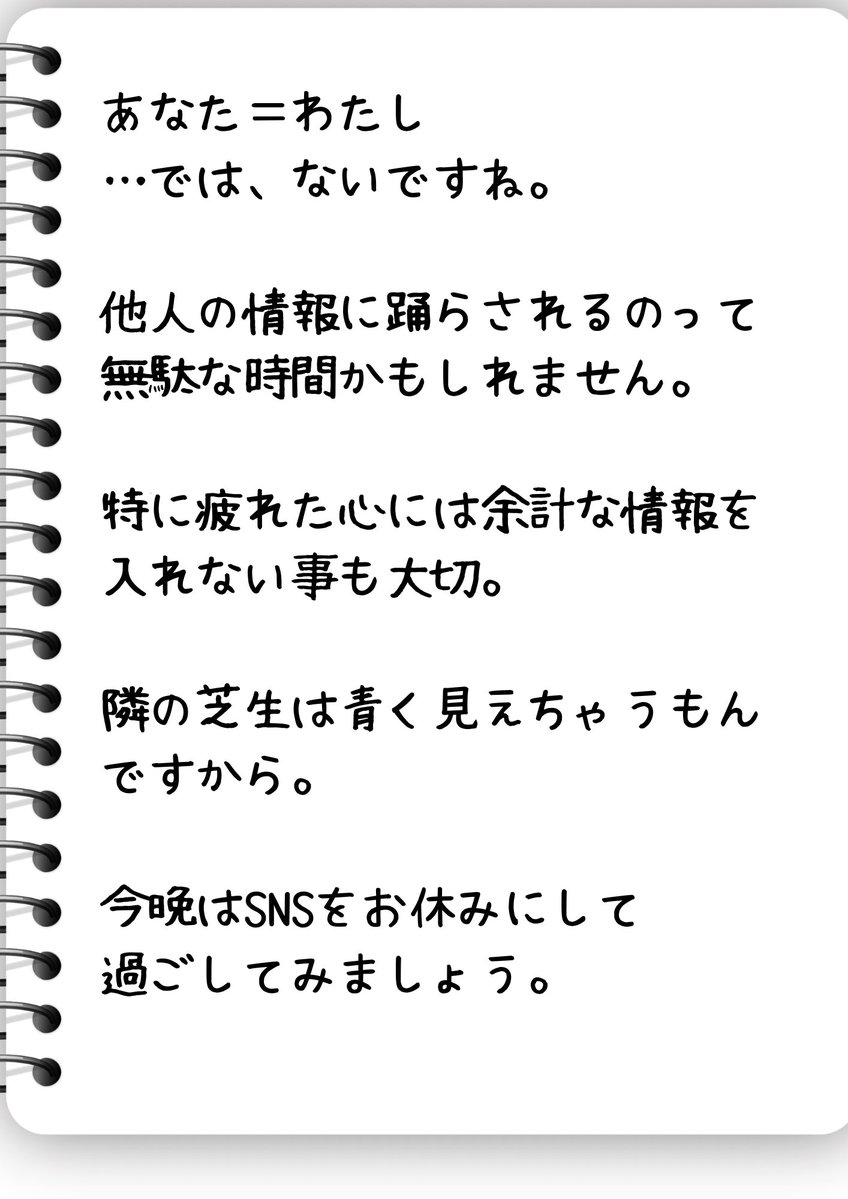 あなた＝わたし
…では、ないですね。
他人の情報に踊らされるのって
無駄な時間かもしれません。
特に疲れた心には余計な情報を
入れない事も大切。
隣の芝生は青く見えちゃうもん
ですから。
今晩はSNSをお休みにして
過ごしてみましょう。